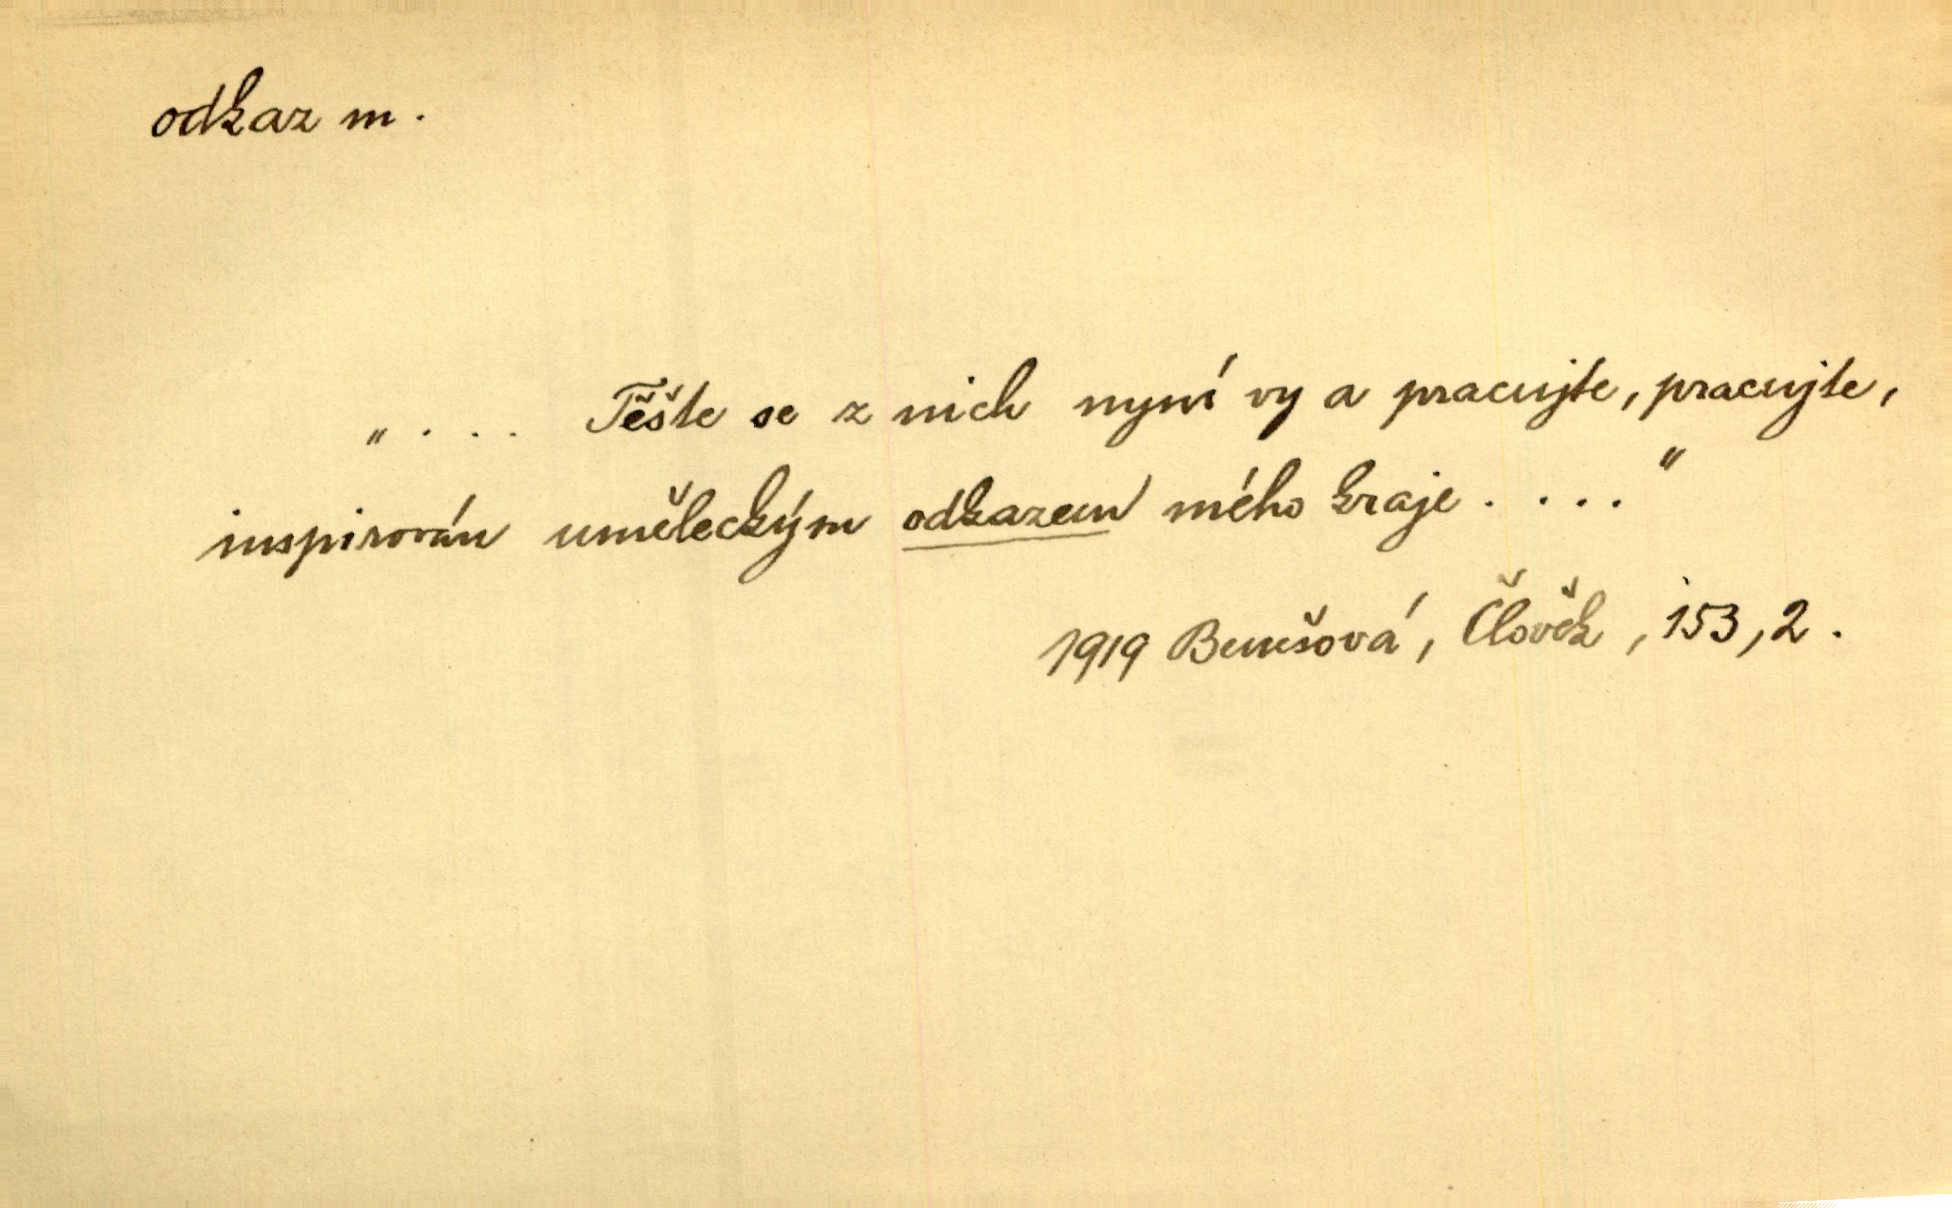 odkaz m.
„ . . . Těšte se z nich nyní vy a pracujte, pracujte,
inspirován uměleckým odkazem mého kraje . . . ."
1919 Benešová, Člověk, 153, 2.